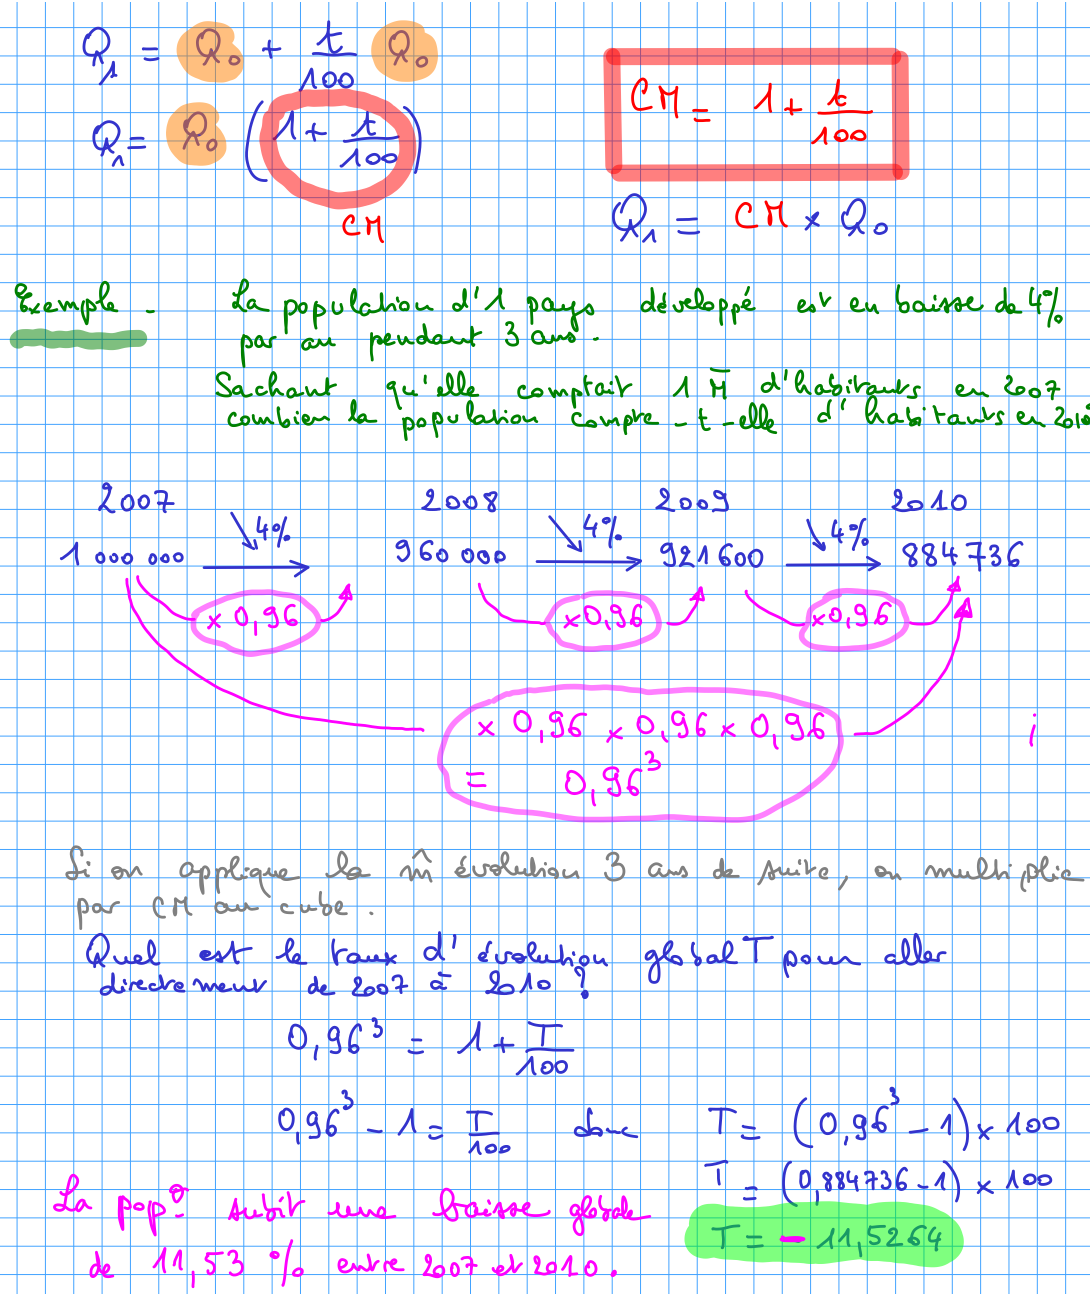 Q₁ = Q₀ + t/100 Q₀
Q₁ = Q₀ (1 + t/100)
CM
CM = 1 + t/100
Q₁ = CM × Q₀
Exemple -
La population d'1 pays développé est en baisse de 4%
par an pendant 3 ans.
Sachant qu'elle comptait 1 M̄ d'habitants en 2007
combien la population compte-t-elle d'habitants en 2010
2007 2008 2009 2010
↘ 4% ↘ 4% ↘ 4%
1 000 000 → 960 000 → 921 600 → 884 736
× 0,96 ×0,96 ×0,96
× 0,96 × 0,96 × 0,96
= 0,96³
i
Si on applique la m̂ évolution 3 ans de suite, on multiplie
par CM au cube.
Quel est le taux d'évolution global T pour aller
directement de 2007 à 2010 ?
0,96³ = 1 + T/100
0,96³ - 1 = T/100 donc T = (0,96³ - 1) × 100
T = (0,884736 - 1) × 100
T = - 11,5264
La pop° subit une baisse globale
de 11,53 % entre 2007 et 2010.